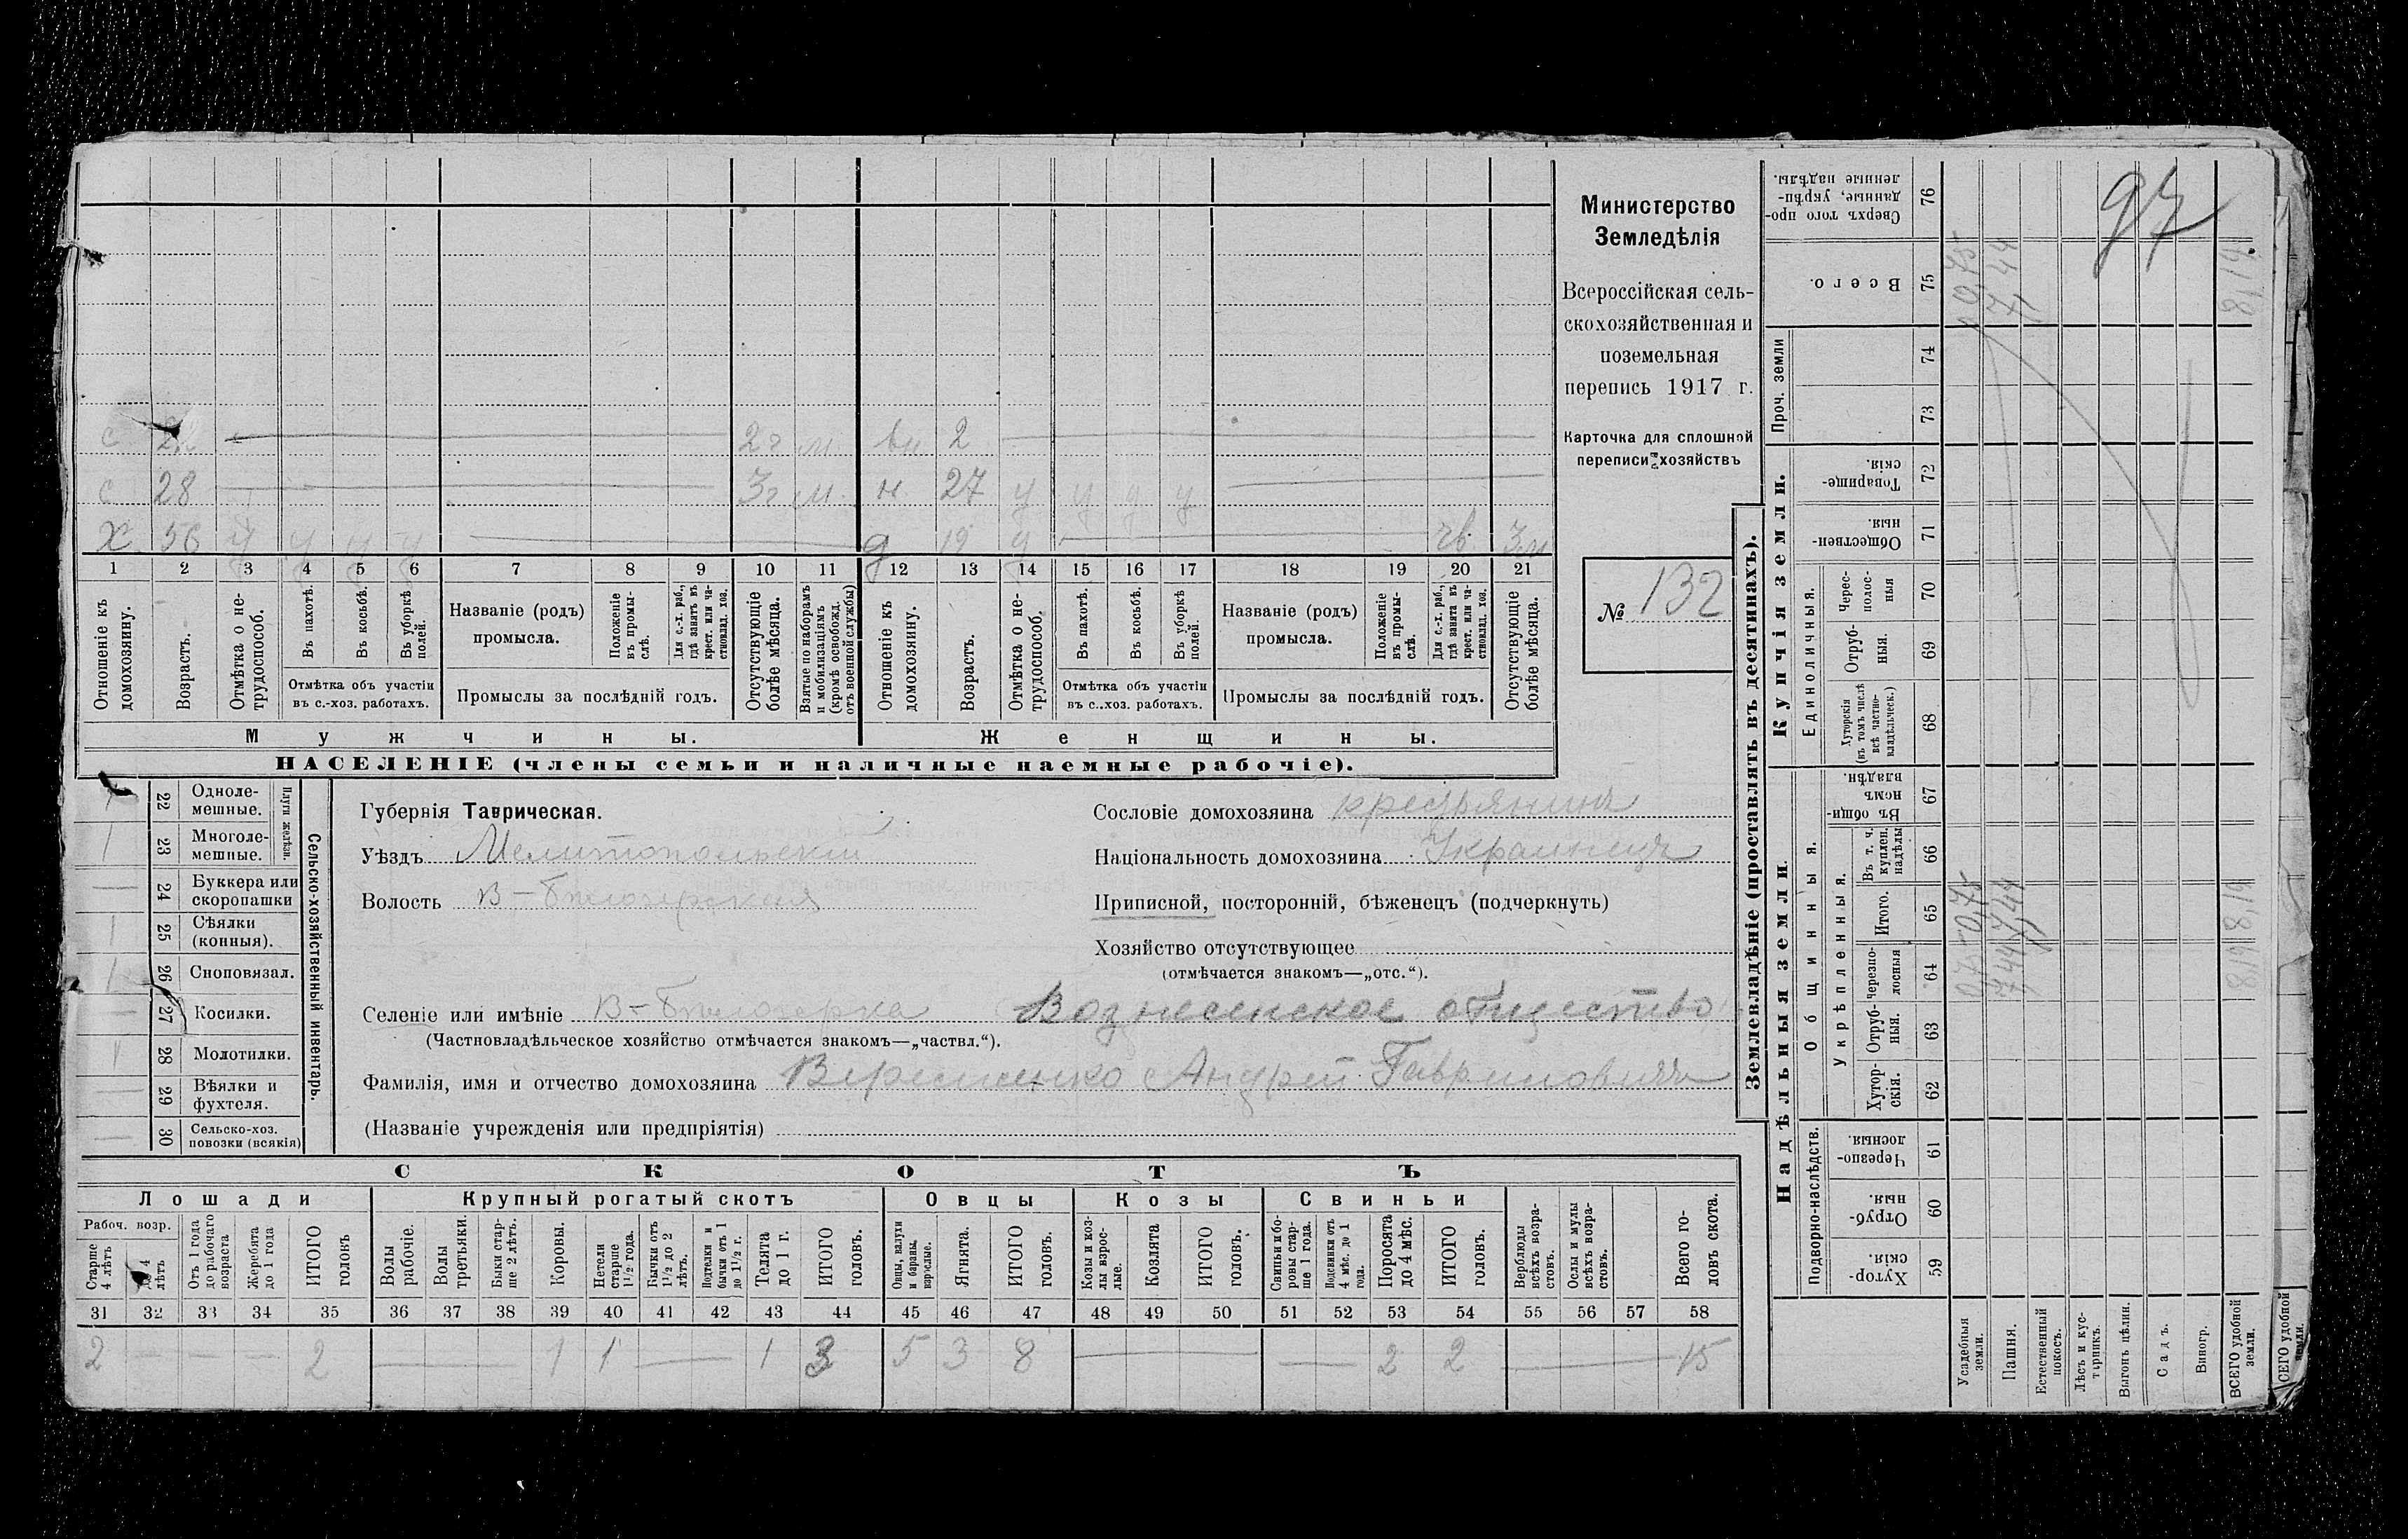 Министерство
Земледѣлія
Всероссійская сель-
скохозяйственная и
поземельная
перепись 1917 г.
Карточка для сплошной
переписи хозяйствъ
№ 132
97
с 22 — 2 г м. вн 2 —
с 28 — 3 г м. н 27 у у у у —
х 56 у у у у — д 19 у —
1 2 3 4 5 6 7 8 9 10 11 12 13 14 15 16 17 18 19 20 21
Отношеніе къ домохозяину.
Возрастъ.
Отмѣтка о не-трудоспособ.
Въ пахотѣ.
Въ косьбѣ.
Въ уборкѣ полей.
Отмѣтка объ участіи
въ с.-хоз. работахъ.
Названіе (родъ)
промысла.
Положеніе въ промы-слѣ.
Для с.-х. раб., гдѣ занятъ въ крест. или ча-стновлад. хоз.
Промыслы за послѣдній годъ.
Отсутствующіе болѣе мѣсяца.
Взятые по наборамъ и мобилизаціямъ (кромѣ освобожд. отъ военной службы)
Отношеніе къ домохозяину.
Возрастъ.
Отмѣтка о не-трудоспособ.
Въ пахотѣ.
Въ косьбѣ.
Въ уборкѣ полей.
Отмѣтка объ участіи
въ с.-хоз. работахъ.
Названіе (родъ)
промысла.
Положеніе въ промы-слѣ.
Для с.-х. раб., гдѣ занята въ крест. или ча-стновлад. хоз.
Промыслы за послѣдній годъ.
Отсутствующіе болѣе мѣсяца.
Мужчины. Женщины.
НАСЕЛЕНІЕ (члены семьи и наличные наемные рабочіе).
Сельско-хозяйственный инвентарь.
Плуги желѣзн.
22 Одноле-мешные.
1 23 Многоле-мешные.
— 24 Буккера или скоропашки
1 25 Сѣялки (конныя).
1 26 Сноповязал.
— 27 Косилки.
1 28 Молотилки.
— 29 Вѣялки и фухтеля.
— 30 Сельско-хоз. повозки (всякія)
Губернія Таврическая.
Уѣздъ Мелитопольскій
Волость В-Бѣлозерская
Сословіе домохозяина крестьянинъ
Національность домохозяина Украинецъ
Приписной, посторонній, бѣженецъ (подчеркнуть)
Хозяйство отсутствующее
(отмѣчается знакомъ—„отс.“).
Селеніе или имѣніе В-Бѣлозерка Вознесенское общество
(Частновладѣльческое хозяйство отмѣчается знакомъ—„частвл.“).
Фамилія, имя и отчество домохозяина Андрей Гавриловичъ
(Названіе учрежденія или предпріятія)
СКОТЪ
Лошади Крупный рогатый скотъ Овцы Козы Свиньи
Рабоч. возр.
Старше 4 лѣтъ
До 4 лѣтъ
Отъ 1 года до рабочаго возраста
Жеребята до 1 года
ИТОГО головъ
Волы рабочіе.
Волы третьяки.
Быки стар-ше 2 лѣтъ.
Коровы.
Нетели старше 1½ года.
Бычки отъ 1½ до 2 лѣтъ.
Подтелки и бычки отъ 1 до 1½ г.
Телята до 1 г.
ИТОГО головъ.
Овцы, валухи и бараны, взрослые.
Ягнята.
ИТОГО головъ.
Козы и коз-лы взрос-лые.
Козлята
ИТОГО головъ.
Свиньи и бо-ровы стар-ше 1 года.
Подсвинки отъ 4 мѣс. до 1 года.
Поросята до 4 мѣс.
ИТОГО головъ.
Верблюды всѣхъ возра-стовъ.
Ослы и мулы всѣхъ возра-стовъ.
Всего го-ловъ скота.
31 32 33 34 35 36 37 38 39 40 41 42 43 44 45 46 47 48 49 50 51 52 53 54 55 56 57 58
2 — — — 2 — 1 1 — 1 3 5 3 8 — — 2 2 — 15
Землевладѣніе (проставлять въ десятинахъ).
Надѣльныя земли. Купчія земли.
Подворно-наслѣдств.
Общинныя.
Укрѣпленныя.
Единоличныя.
Проч. земли
59 Хутор-скія.
60 Отруб-ныя.
61 Черезпо-лосныя.
62 Хутор-скія.
63 Отруб-ныя.
64 Черезпо-лосныя
65 Итого.
66 Въ т. ч. куплен. надѣлы
67 Въ общи-номъ владѣн.
68 Хуторскія (въ томъ числѣ всѣ частно-владѣльческ.)
69 Отруб-ныя.
70 Черес-полос-ныя
71 Обществен-ныя.
72 Товарище-скія.
73
74
75 Всего.
76 Сверхъ того про-данные, укрѣп-ленные надѣлы.
Усадебныя земли. 0,75 0,75 0,75
Пашня. 7,44 7,44 7,44
Естественный покосъ.
Лѣсъ и кус-тарникъ.
Выгонъ цѣлин.
Садъ.
Виногр.
ВСЕГО удобной земли. 8,19 8,19 8,19
ВСЕГО удобной земли.